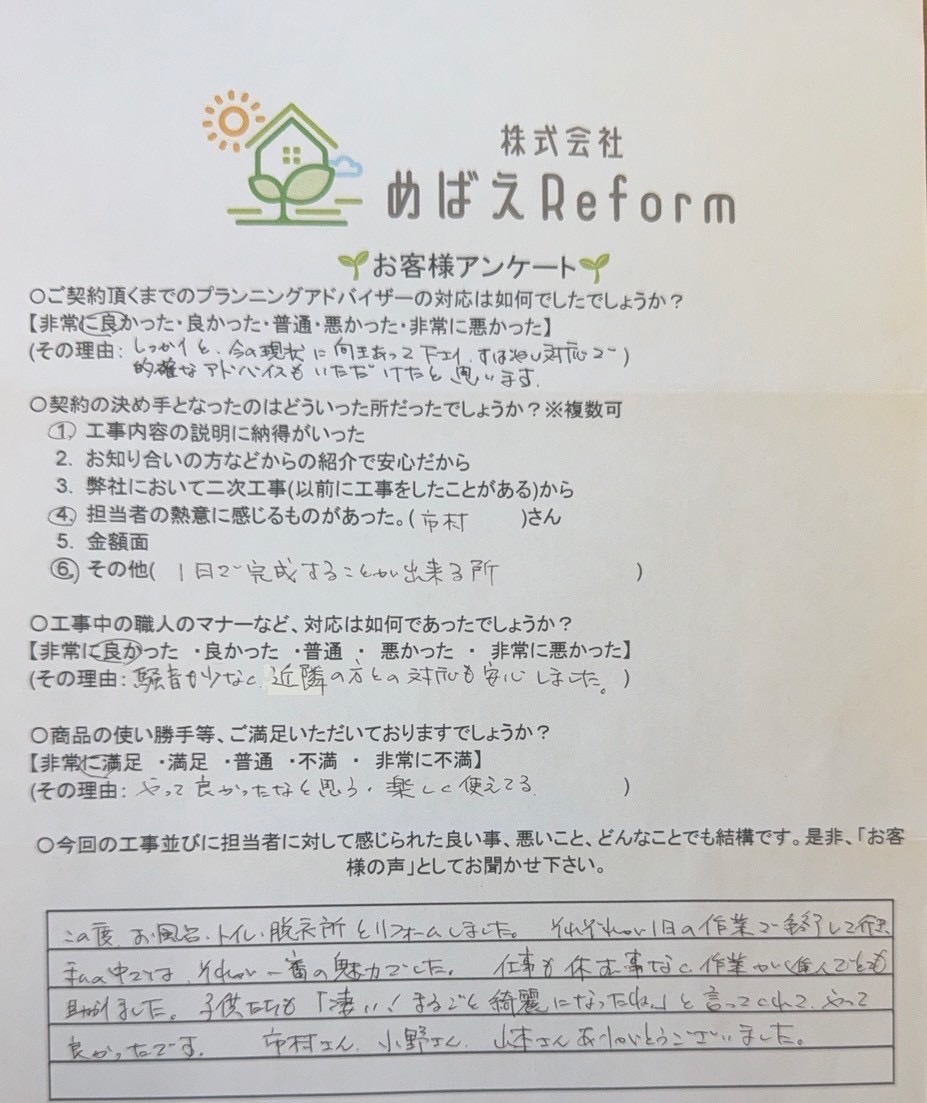 株式会社
めばえReform
お客様アンケート
○ご契約頂くまでのプランニングアドバイザーの対応は如何でしたでしょうか?
【非常に良かった・良かった・普通・悪かった・非常に悪かった】
(その理由: しっかりと、今の現状に向きあって下さり、すばやい対応で)
的確なアドバイスもいただけたと思います。
○契約の決め手となったのはどういった所だったでしょうか?※複数可
1. 工事内容の説明に納得がいった
2. お知り合いの方などからの紹介で安心だから
3. 弊社において二次工事(以前に工事をしたことがある)から
4. 担当者の熱意に感じるものがあった。(市村 )さん
5. 金額面
6. その他( 1日で完成することが出来る所 )
○工事中の職人のマナーなど、対応は如何であったでしょうか?
【非常に良かった ・良かった ・普通 ・ 悪かった ・ 非常に悪かった】
(その理由: 騒音が少なく、近隣の方との対応も安心しました。 )
○商品の使い勝手等、ご満足いただいておりますでしょうか?
【非常に満足 ・満足 ・普通 ・不満 ・ 非常に不満】
(その理由: やって良かったなと思う。楽しく使えてる。 )
○今回の工事並びに担当者に対して感じられた良い事、悪いこと、どんなことでも結構です。是非、「お客
様の声」としてお聞かせ下さい。
この度、お風呂、トイレ、脱衣所とリフォームしました。 それぞれが1日の作業で終了して
私の中では、それが一番の魅力でした。 仕事も休む事なく、作業が でとても
助かりました。子供たちも「凄い!まるごと綺麗になったね。」と言ってくれて、やって
良かったです。 市村さん、小野さん、山本さんありがとうございました。